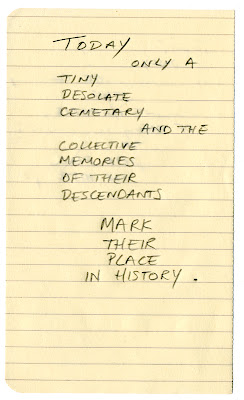 TODAY
ONLY A
TINY
DESOLATE
CEMETARY
AND THE
COLLECTIVE
MEMORIES
OF THEIR
DESCENDANTS
MARK
THEIR
PLACE
IN HISTORY.